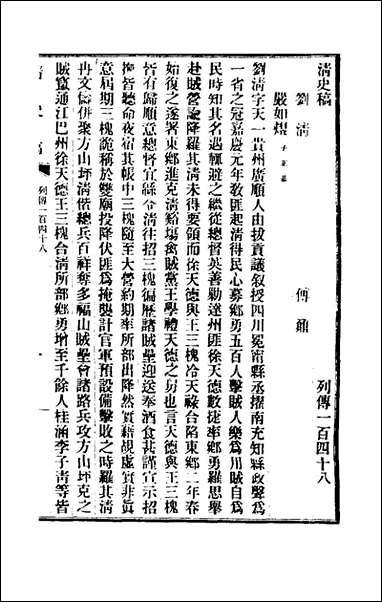 清史稿
列傳一百四十八
劉清
傅鼐
嚴如熤 子正基
劉清字天一貴州廣順人由拔貢議敘授四川冕甯縣丞擢南充知縣政聲為
一省之冠嘉慶元年教匪起清得民心募鄉勇五百人擊賊人樂為用賊自為
民時知其名遇輒避之繼從總督英善勦達州匪徐天德數捷率鄉勇羅思舉
赴賊營諭降羅其清未得要領而徐天德與王三槐冷天祿合陷東鄉二年春
始復之遂署東鄉進克清谿場禽賊黨王學禮天德之舅也言天德與王三槐
皆有歸順意總督宜緜令清往招三槐徧歷諸賊壘迎送奉酒食甚謹宣示招
撫皆聽命夜宿其帳中三槐隨至大營約期率所部出降然實藉覘虛實非眞
意屆期三槐詭稱於雙廟投降伏匪為掩襲計官軍預設備擊敗之時羅其清
冉文儔併聚方山坪清偕總兵百祥奪多福山賊壘會諸路兵攻方山坪克之
賊竄通江巴州徐天德王三槐合清所部鄉勇增至千餘人桂涵李子青等皆
列傳一百四十八